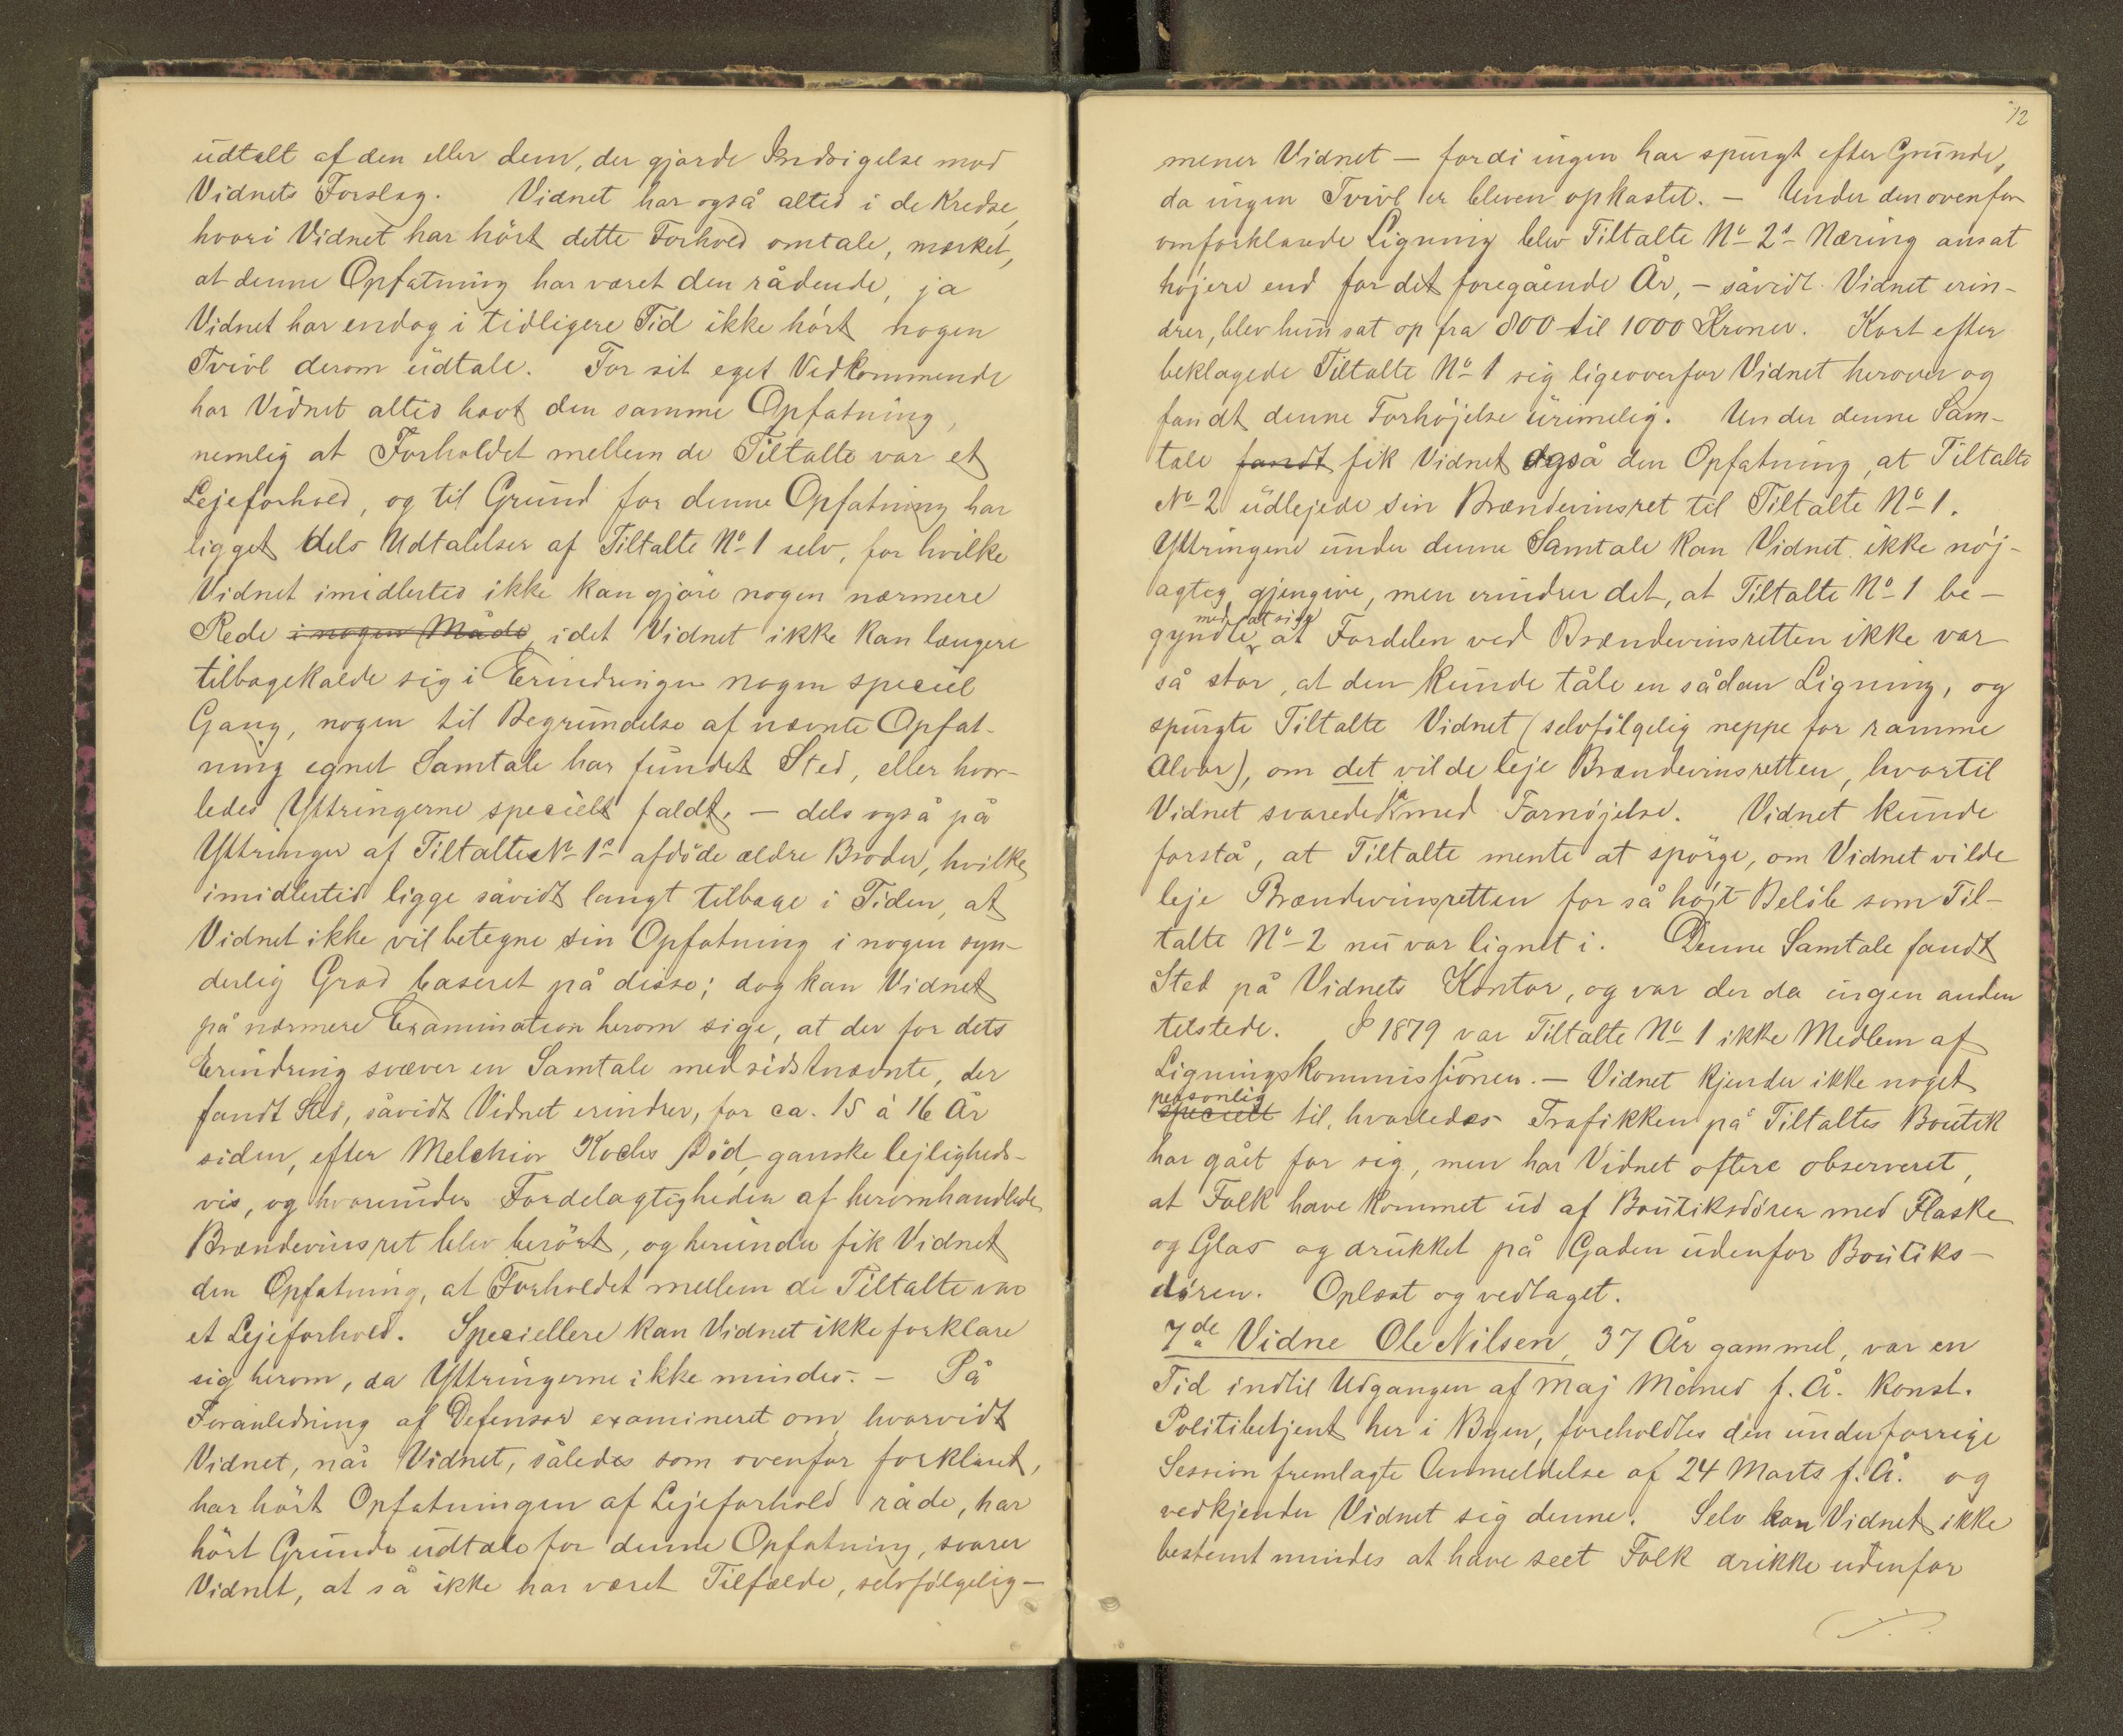 udtalt af den eller dem, der gjorde Indsigelse mod
Vidnets Forslag. Vidnet har også altid i de Kredse,
hvori Vidnet har hört dette Forhold omtale, mærket,
at denne Opfatning har været den rådende, ja
Vidnet har endog i tidligere Tid ikke hört nogen
Tvivl derom udtale. For sit eget Vedkommende
har Vidnet altid havt den samme Opfatning,
nemlig at Forholdet mellem de Tiltalte var et
Lejeforhold, og til Grund for denne Opfatning har
ligget dels Udtalelser af Tiltalte No 1 selv, for hvilke
Vidnet imidlertid ikke kan gjöre nogen nærmere
Rede i nogen Måde, idet Vidnet ikke kan længere
tilbagekalde sig i Erindringen nogen speciel
Gang, nogen til Begrundelse af nævnte Opfat-
ning egnet Samtale har fundet Sted, eller hvor-
ledes Yttringerne specielt faldt. — dels også på
Yttringer af Tiltalte No 1s afdöde ældre Broder, hvilke
imidlertid ligge såvidt langt tilbage i Tiden, at
Vidnet ikke vil betegne sin Opfatning i nogen syn-
derlig Grad baseret på disse; dog kan Vidnet
på nærmere Examination herom sige, at der for dets
Erindring svæver en Samtale med sidstnævnte, der
fandt Sted, såvidt Vidnet erindrer, for ca. 15 à 16 År
siden, efter Melchior Kochs Död, ganske lejligheds-
vis, og hvorunder Fordelagtigheden af heromhandlede
Brændevinsret blev berört, og herunder fik Vidnet
den Opfatning, at Forholdet mellem de Tiltalte var
et Lejeforhold. Speciellere kan Vidnet ikke forklare
sig herom, da Yttringerne ikke mindes. — På
Foranledning af Defensor examineret om, hvorvidt
Vidnet, når Vidnet, således som ovenfor forklaret,
har hört Opfatningen af Lejeforhold råde, har
hört Grunde udtale for denne Opfatning, svarer
Vidnet, at så ikke har været Tilfælde, selvfölgelig —
12
mener Vidnet — fordi ingen har spurgt efter Grunde,
da ingen Tvivl er bleven opkastet. — Under den ovenfor
omforklarede Ligning blev Tiltalte No 2s Næring ansat
höjere end for det foregående År, — såvidt Vidnet erin-
drer, blev hun sat op fra 800 til 1000 Kroner. Kort efter
beklagede Tiltalte No 1 sig ligeoverfor Vidnet herover og
fandt denne Forhöjelse urimelig. Under denne Sam-
tale fandt fik Vidnet også den Opfatning, at Tiltalte
No 2 udlejede sin Brændevinsret til Tiltalte No 1.
Yttringene under denne Samtale kan Vidnet ikke nöj-
agtig gjengive, men erindrer det, at Tiltalte No 1 be-
med at sige
gyndte at Fordelen ved Brændevinsretten ikke var
så stor, at den kunde tåle en sådan Ligning, og
spurgte Tiltalte Vidnet (selvfölgelig neppe for ramme
Alvor), om det vilde leje Brændevinsretten, hvortil
Vidnet svarede ja med Fornöjelse. Vidnet kunde
forstå, at Tiltalte mente at spörge, om Vidnet vilde
leje Brændevinsretten for så höjt Belöb som Til-
talte No 2 nu var lignet i. Denne Samtale fandt
Sted på Vidnets Kontor, og var der da ingen anden
tilstede. I 1879 var Tiltalte No 1 ikke Medlem af
Ligningskommissionen. — Vidnet kjender ikke noget
personlig
specielt til, hvorledes Trafikken på Tiltaltes Boutik
har gået for sig, men har Vidnet oftere observeret,
at Folk have kommet ud af Boutiksdören med Flaske
og Glas og drukket på Gaden udenfor Boutiks-
dören. Oplæst og vedtaget.
7de Vidne Ole Nilsen, 37 År gammel, var en
Tid indtil Udgangen af Maj Måned f. Å. konst.
Politibetjent her i Byen, foreholdtes den under forrige
Session fremlagte Anmeldelse af 24 Marts f. Å. og
vedkjender Vidnet sig denne. Selv kan Vidnet ikke
bestemt mindes at have seet Folk drikke udenfor